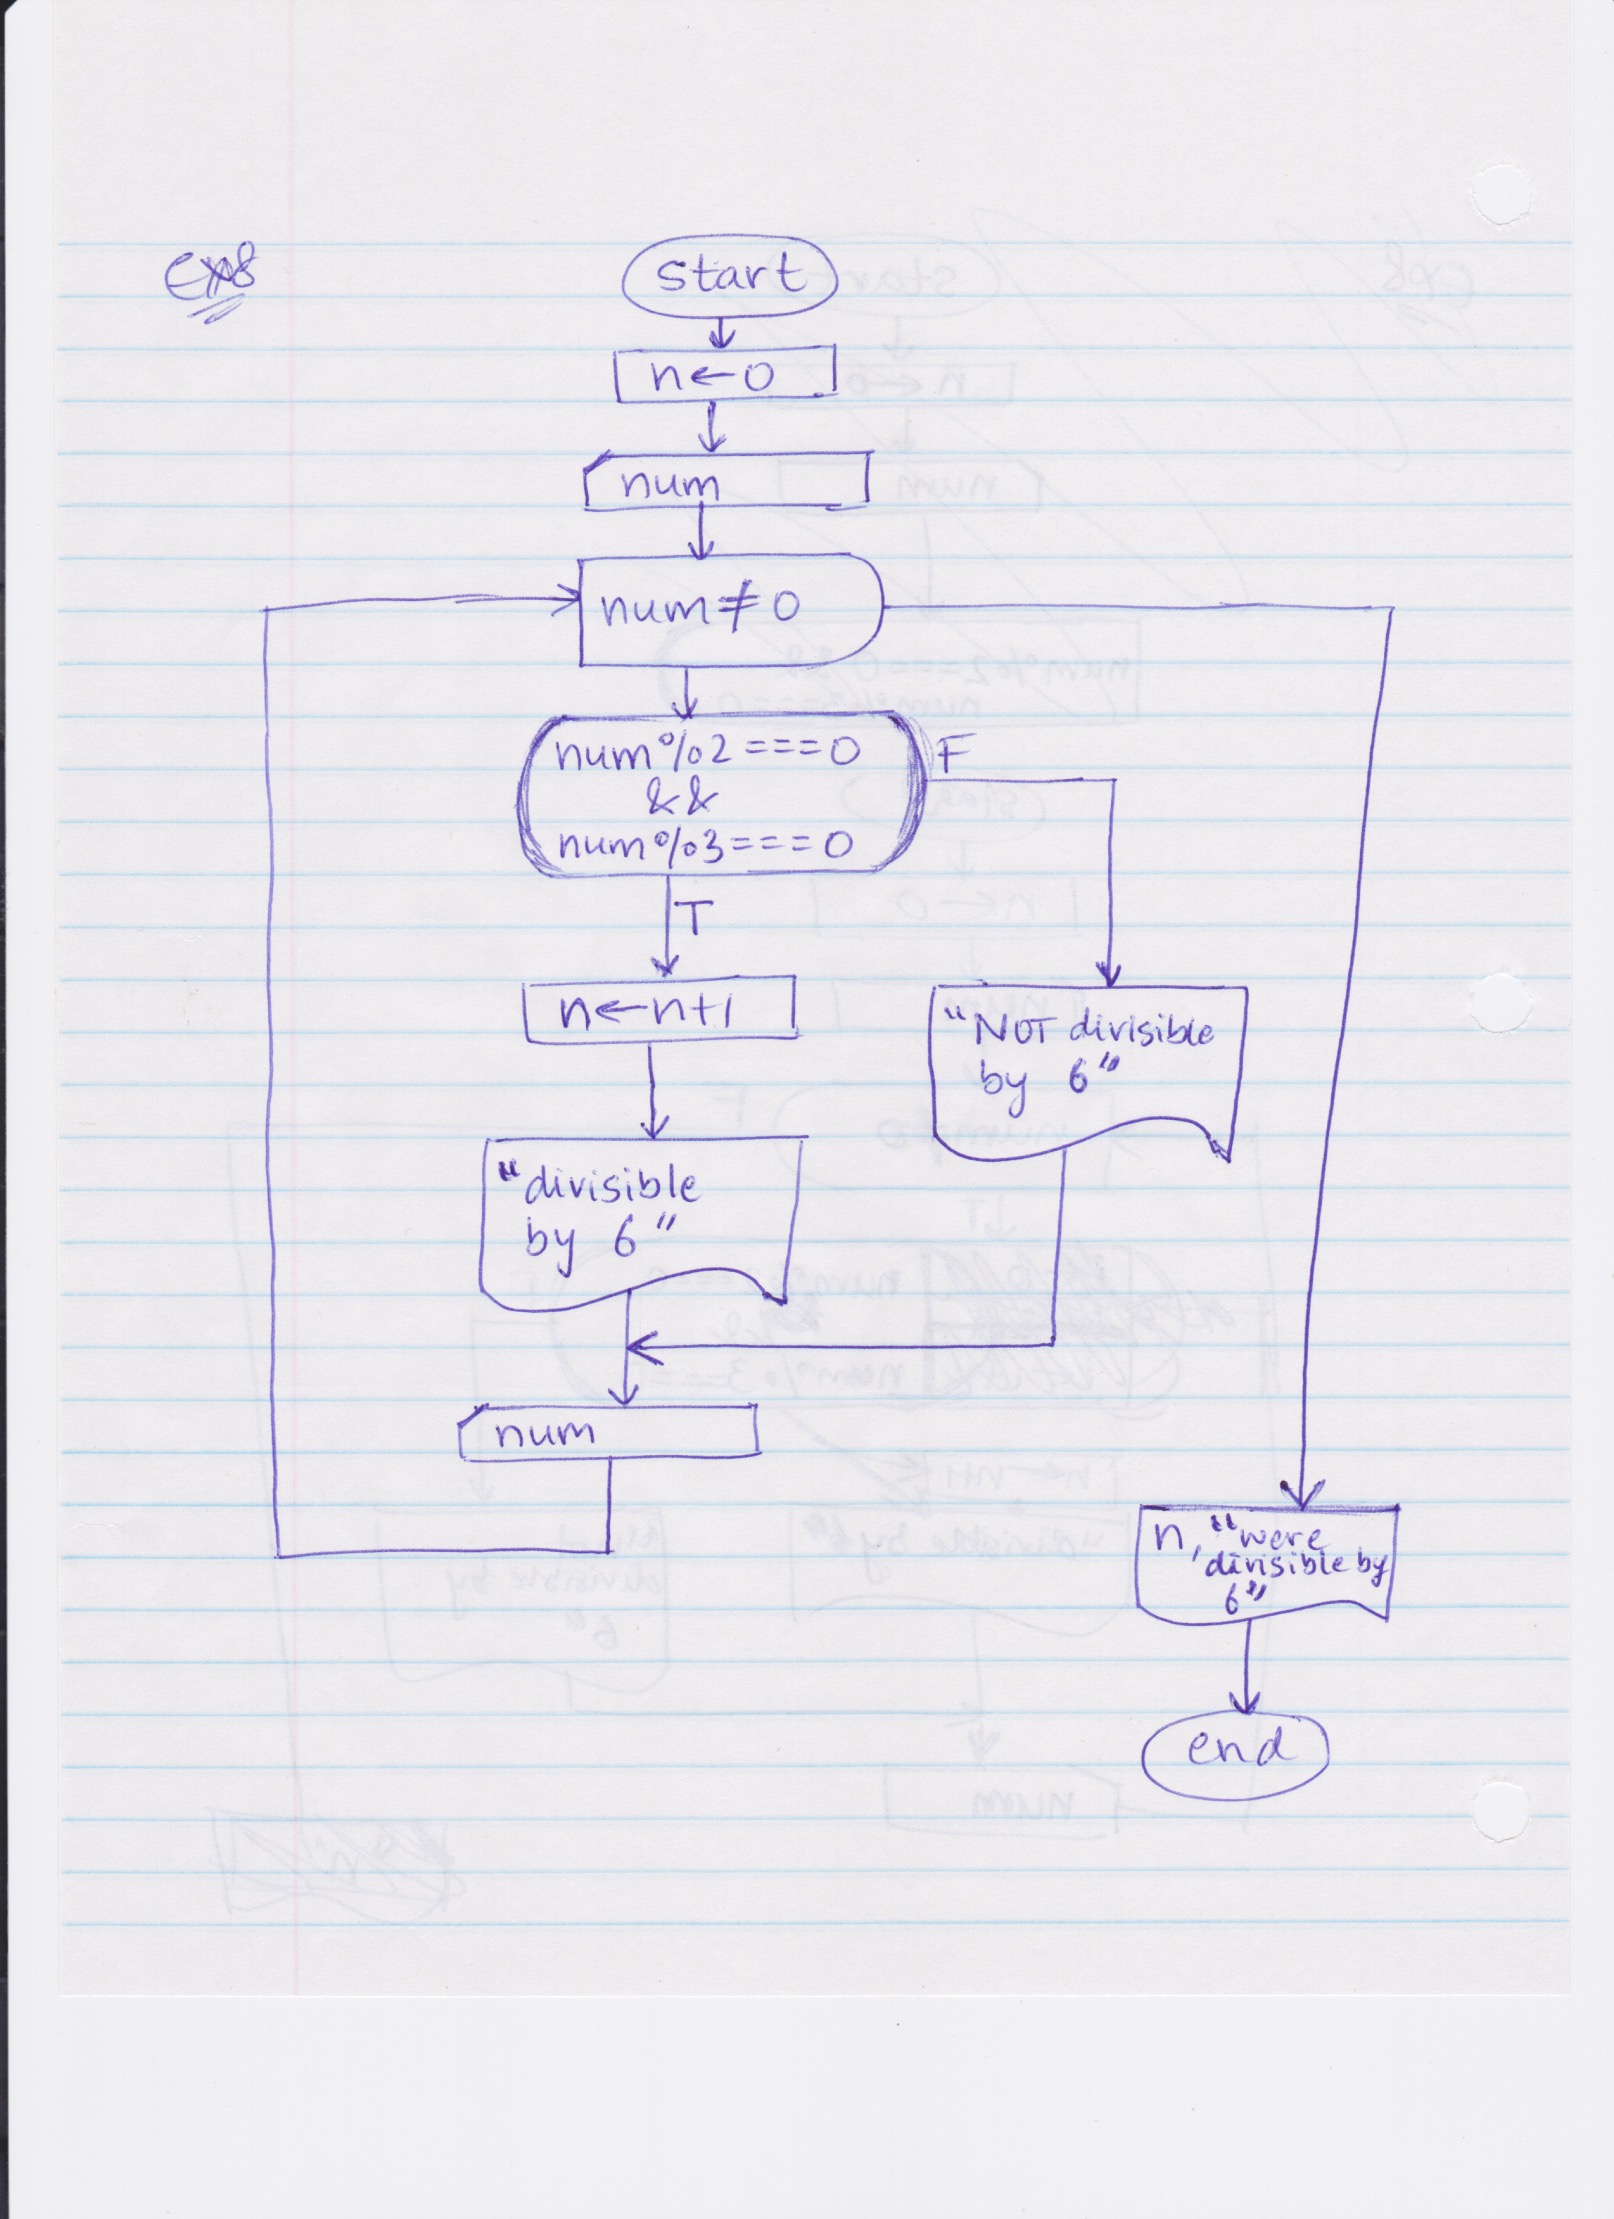 Ex8
start
n←0
num
num≠0
num%2===0
&&
num%3===0
F
T
n←n+1
"NOT divisible
by 6"
"divisible
by 6"
num
n, "were
divisible by
6"
end